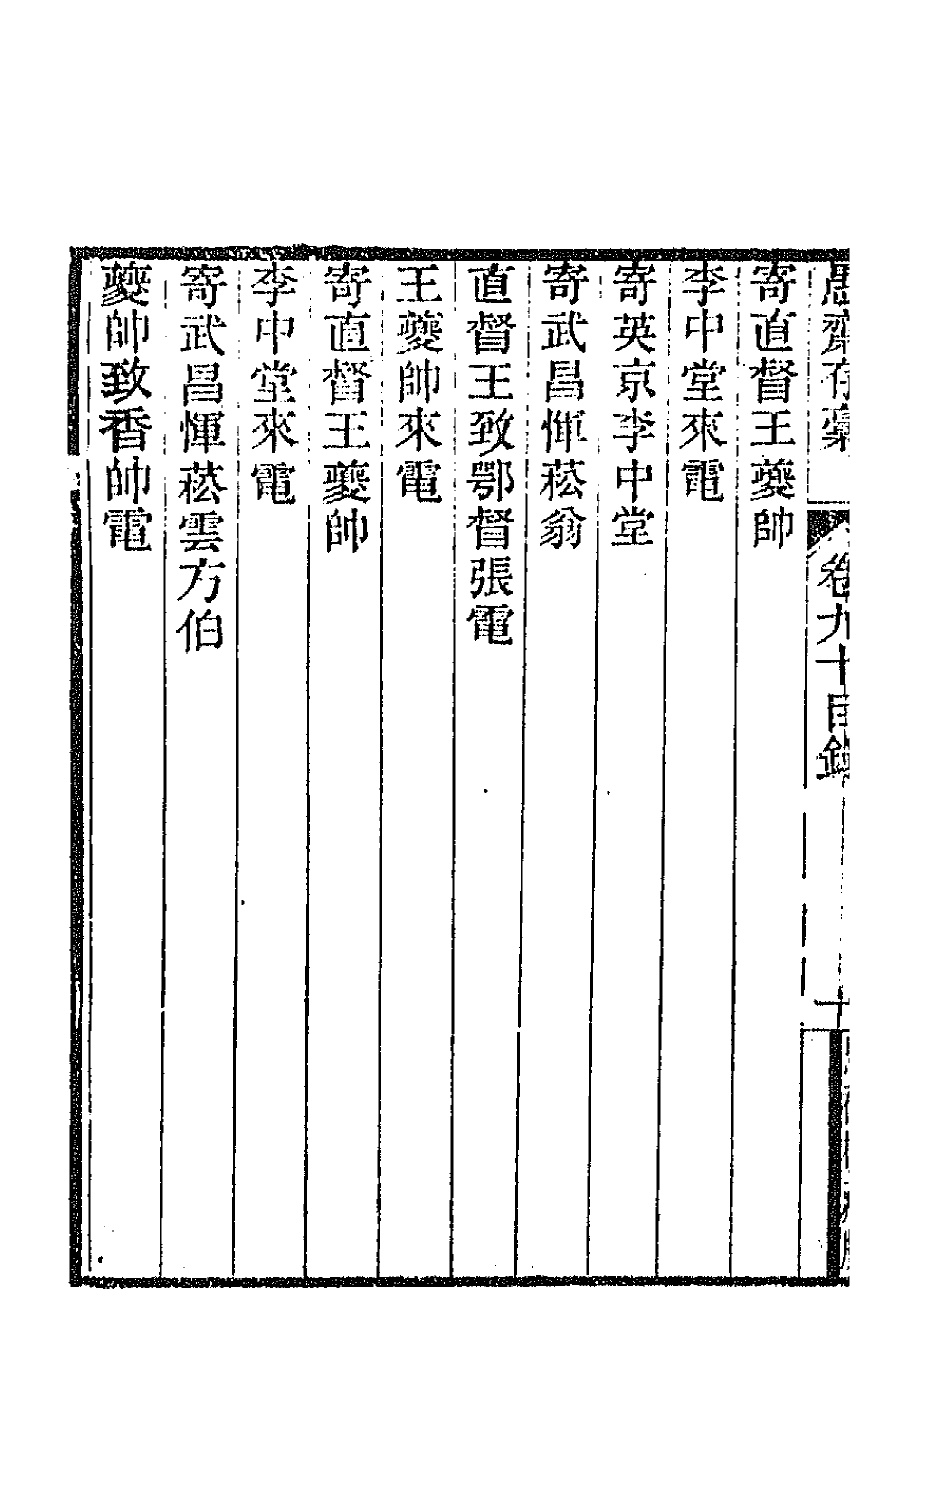 愚齋存稾
卷九十目錄
十
寄直督王夔帥
李中堂來電
寄英京李中堂
寄武昌惲菘翁
直督王致鄂督張電
王夔帥來電
寄直督王夔帥
李中堂來電
寄武昌惲菘雲方伯
夔帥致香帥電